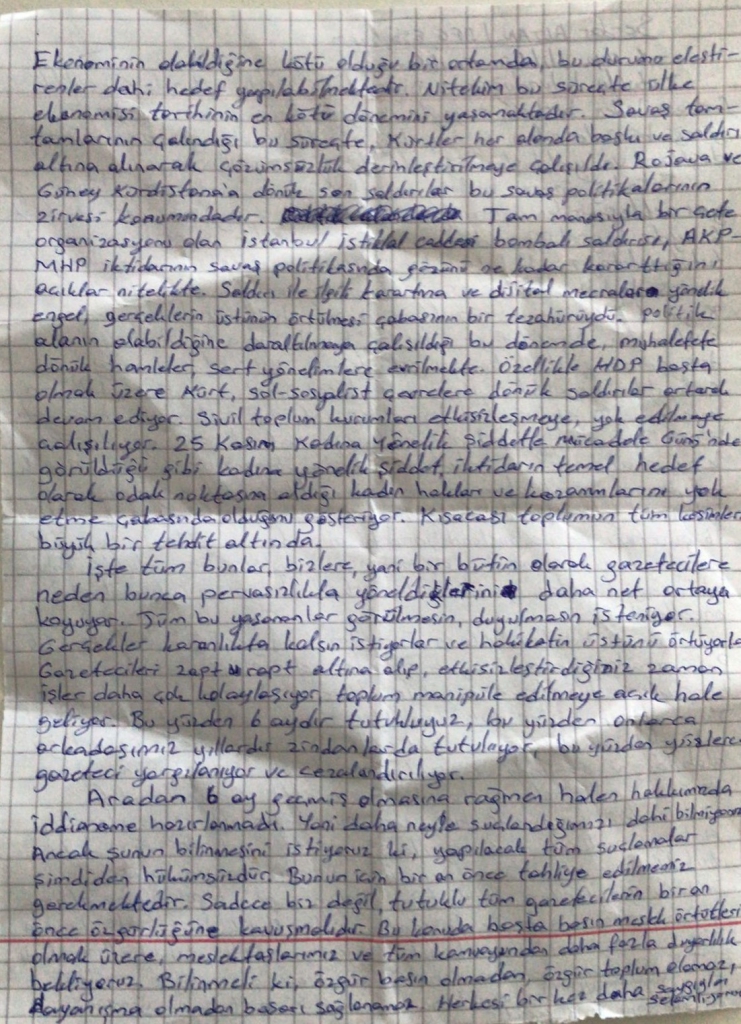 Ekonominin olabildiğine kötü olduğu bir ortamda, bu durumu eleşti-
renler dahi hedef yapılabilmektedir. Nitekim bu süreçte ülke
ekonomisi tarihinin en kötü dönemini yaşamaktadır. Savaş tam-
tamlarının çalındığı bu süreçte, Kürtler her alanda baskı ve saldırı
altına alınarak çözümsüzlük derinleştirilmeye çalışıldı. Rojava ve
Güney Kürdistana'a dönük son saldırılar bu savaş politikalarının
zirvesi konumundadır. Tam manasıyla bir çete
organizasyonu olan istanbul istiklal caddesi bombalı saldırısı, AKP-
MHP iktidarının savaş politikasında gözünü ne kadar kararttığını
açıklar nitelikte. Saldırı ile ilgili karartma ve dijital mecralara yönelik
engel, gerçeklerin üstünün örtülmesi çabasının bir tezahürüydü. Politik
alanın olabildiğine daraltılmaya çalışıldığı bu dönemde, muhalefete
dönük hamleler, sert yönelimlere evrilmekte. Özellikle HDP başta
olmak üzere Kürt, sol-sosyalist çevrelere dönük saldırılar artarak
devam ediyor. Sivil toplum kurumları etkisizleşmeye, yok edilmeye
çalışılıyor. 25 Kasım Kadına Yönelik Şiddetle Mücadele Günü'nde
görüldüğü gibi kadına yönelik şiddet, iktidarın temel hedef
olarak odak noktasına aldığı kadın hakları ve kazanımlarını yok
etme çabasında olduğunu gösteriyor. Kısacası toplumun tüm kesimleri
büyük bir tehdit altında.
İşte tüm bunlar, bizlere, yani bir bütün olarak gazetecilere
neden bunca pervasızlıkla yöneldiklerini daha net ortaya
koyuyor. Tüm bu yaşananlar görülmesin, duyulmasın isteniyor.
Gerçekler karanlıkta kalsın istiyorlar ve hakikatin üstünü örtüyorlar
Gazetecileri zapt u rapt altına alıp, etkisizleştirdiğiniz zaman
işler daha çok kolaylaşıyor, toplum manipüle edilmeye açık hale
geliyor. Bu yüzden 6 aydır tutukluyuz, bu yüzden onlarca
arkadaşımız yıllardır zindanlarda tutuluyor, bu yüzden yüzlerce
gazeteci yargılanıyor ve cezalandırılıyor.
Aradan 6 ay geçmiş olmasına rağmen halen hakkımızda
iddianame hazırlanmadı. Yani daha neyle suçlandığımızı dahi bilmiyoruz
Ancak şunun bilinmesini istiyoruz ki, yapılacak tüm suçlamalar
şimdiden hükümsüzdür. Bunun için bir an önce tahliye edilmemiz
gerekmektedir. Sadece biz değil, tutuklu tüm gazetecilerin bir an
önce özgürlüğüne kavuşmalıdır. Bu konuda başta basın meslek örgütleri
olmak üzere, meslektaşlarımız ve tüm kamuoyundan daha fazla duyarlılık
bekliyoruz. Bilinmeli ki, özgür basın olmadan, özgür toplum olamaz,
dayanışma olmadan başarı sağlanamaz. Herkesi bir kez daha saygıyla
selamlıyoruz